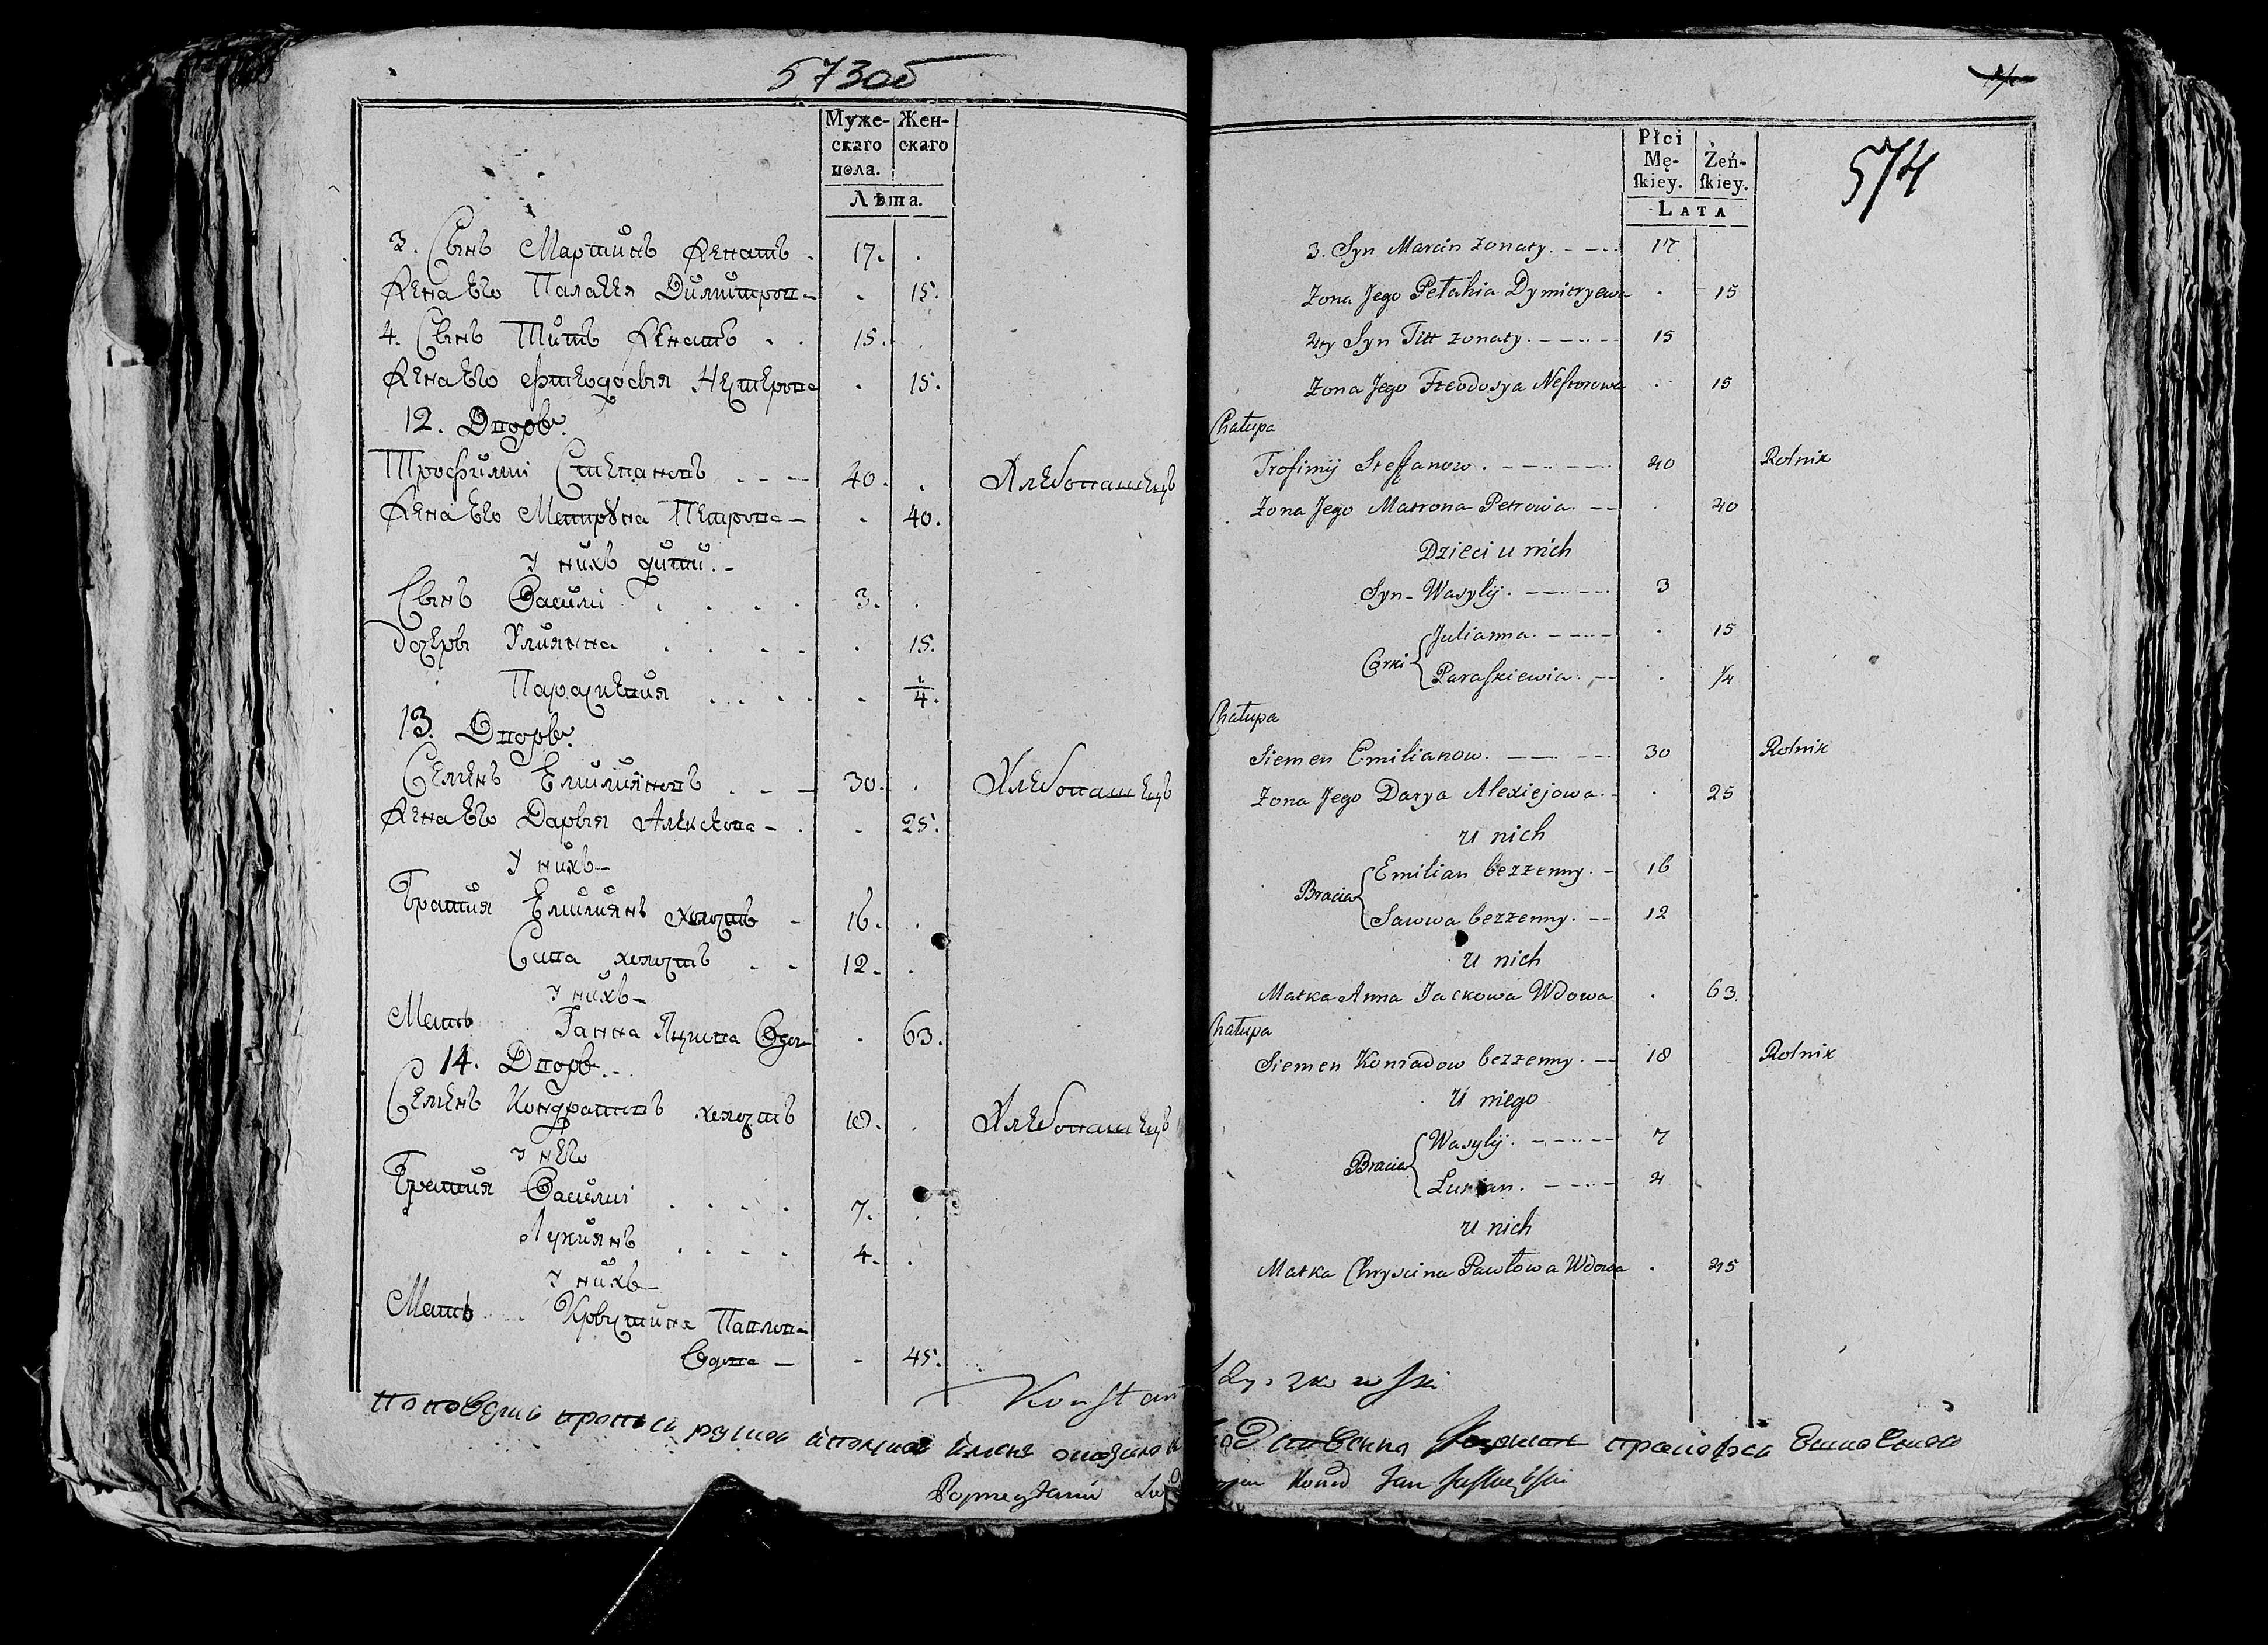 573об
Муже-
скаго
пола.
Жен-
скаго
Лѣта.
3. Сынъ Мартинъ женатъ . 17.
Жена Его Палагея Димитров- 15.
4. Сынъ Титъ женатъ . . 15.
Жена Его Фтеодосия Нестерова 15.
12. Дворъ.
Трофимъ Степановъ - - - 40. Хлебопашецъ
Жена Его Матрона Петрова - 40.
У нихъ дити. -
Сынъ Василі . . . . 3.
Дочерь Улияна . . . . 15.
Параскевия . . . . 1/4.
13. Дворъ.
Семенъ Емилияновъ . - - 30. Хлебопашецъ
Жена Его Дарья Алексеева - 25.
У нихъ-
Братия Емилиянъ холостъ - 16.
Сава холостъ . - 12.
У нихъ-
Мать Ганна Яцкова Вдова 63.
14. Дворъ. -
Семенъ Кондратовъ холостъ 18. Хлебопашецъ
У него
Братия Василі . . . . 7.
Лукиянъ . . . . 4.
У нихъ-
Мать Крыстина Павлов-
Вдова - 45.
574
Płci
Mę-
skiey.
Żeń-
skiey.
LATA
3. Syn Marcin żonaty. - - - 17
Żona Jego Pelahia Dymitryewa 15
4ty Syn Titt żonaty. - - - - 15
Żona Jego Fteodosya Nestorowa 15
Chałupa
Trofimij Steffanow. - - - - 40 Rolnik
Żona Jego Matrona Petrowa. - - 40
Dzieci u nich
Syn - Wasylij. - - - - 3
Corki { Julianna. - - - 15
Paraskiewia. - - 1/4
Chałupa
Siemen Emilianow. - - - 30 Rolnik
Żona Jego Darya Alexiejowa. - 25
u nich
Bracia { Emilian bezżenny. - 16
Sawwa bezżenny. - - 12
u nich
Matka Anna Jackowa Wdowa 63.
Chałupa
Siemen Konradow bezżenny. - 18 Rolnik
U niego
Bracia { Wasylij. - - - - 7
Łukian. - - - - 4
u nich
Matka Chryscina Pawłowa Wdowa 45